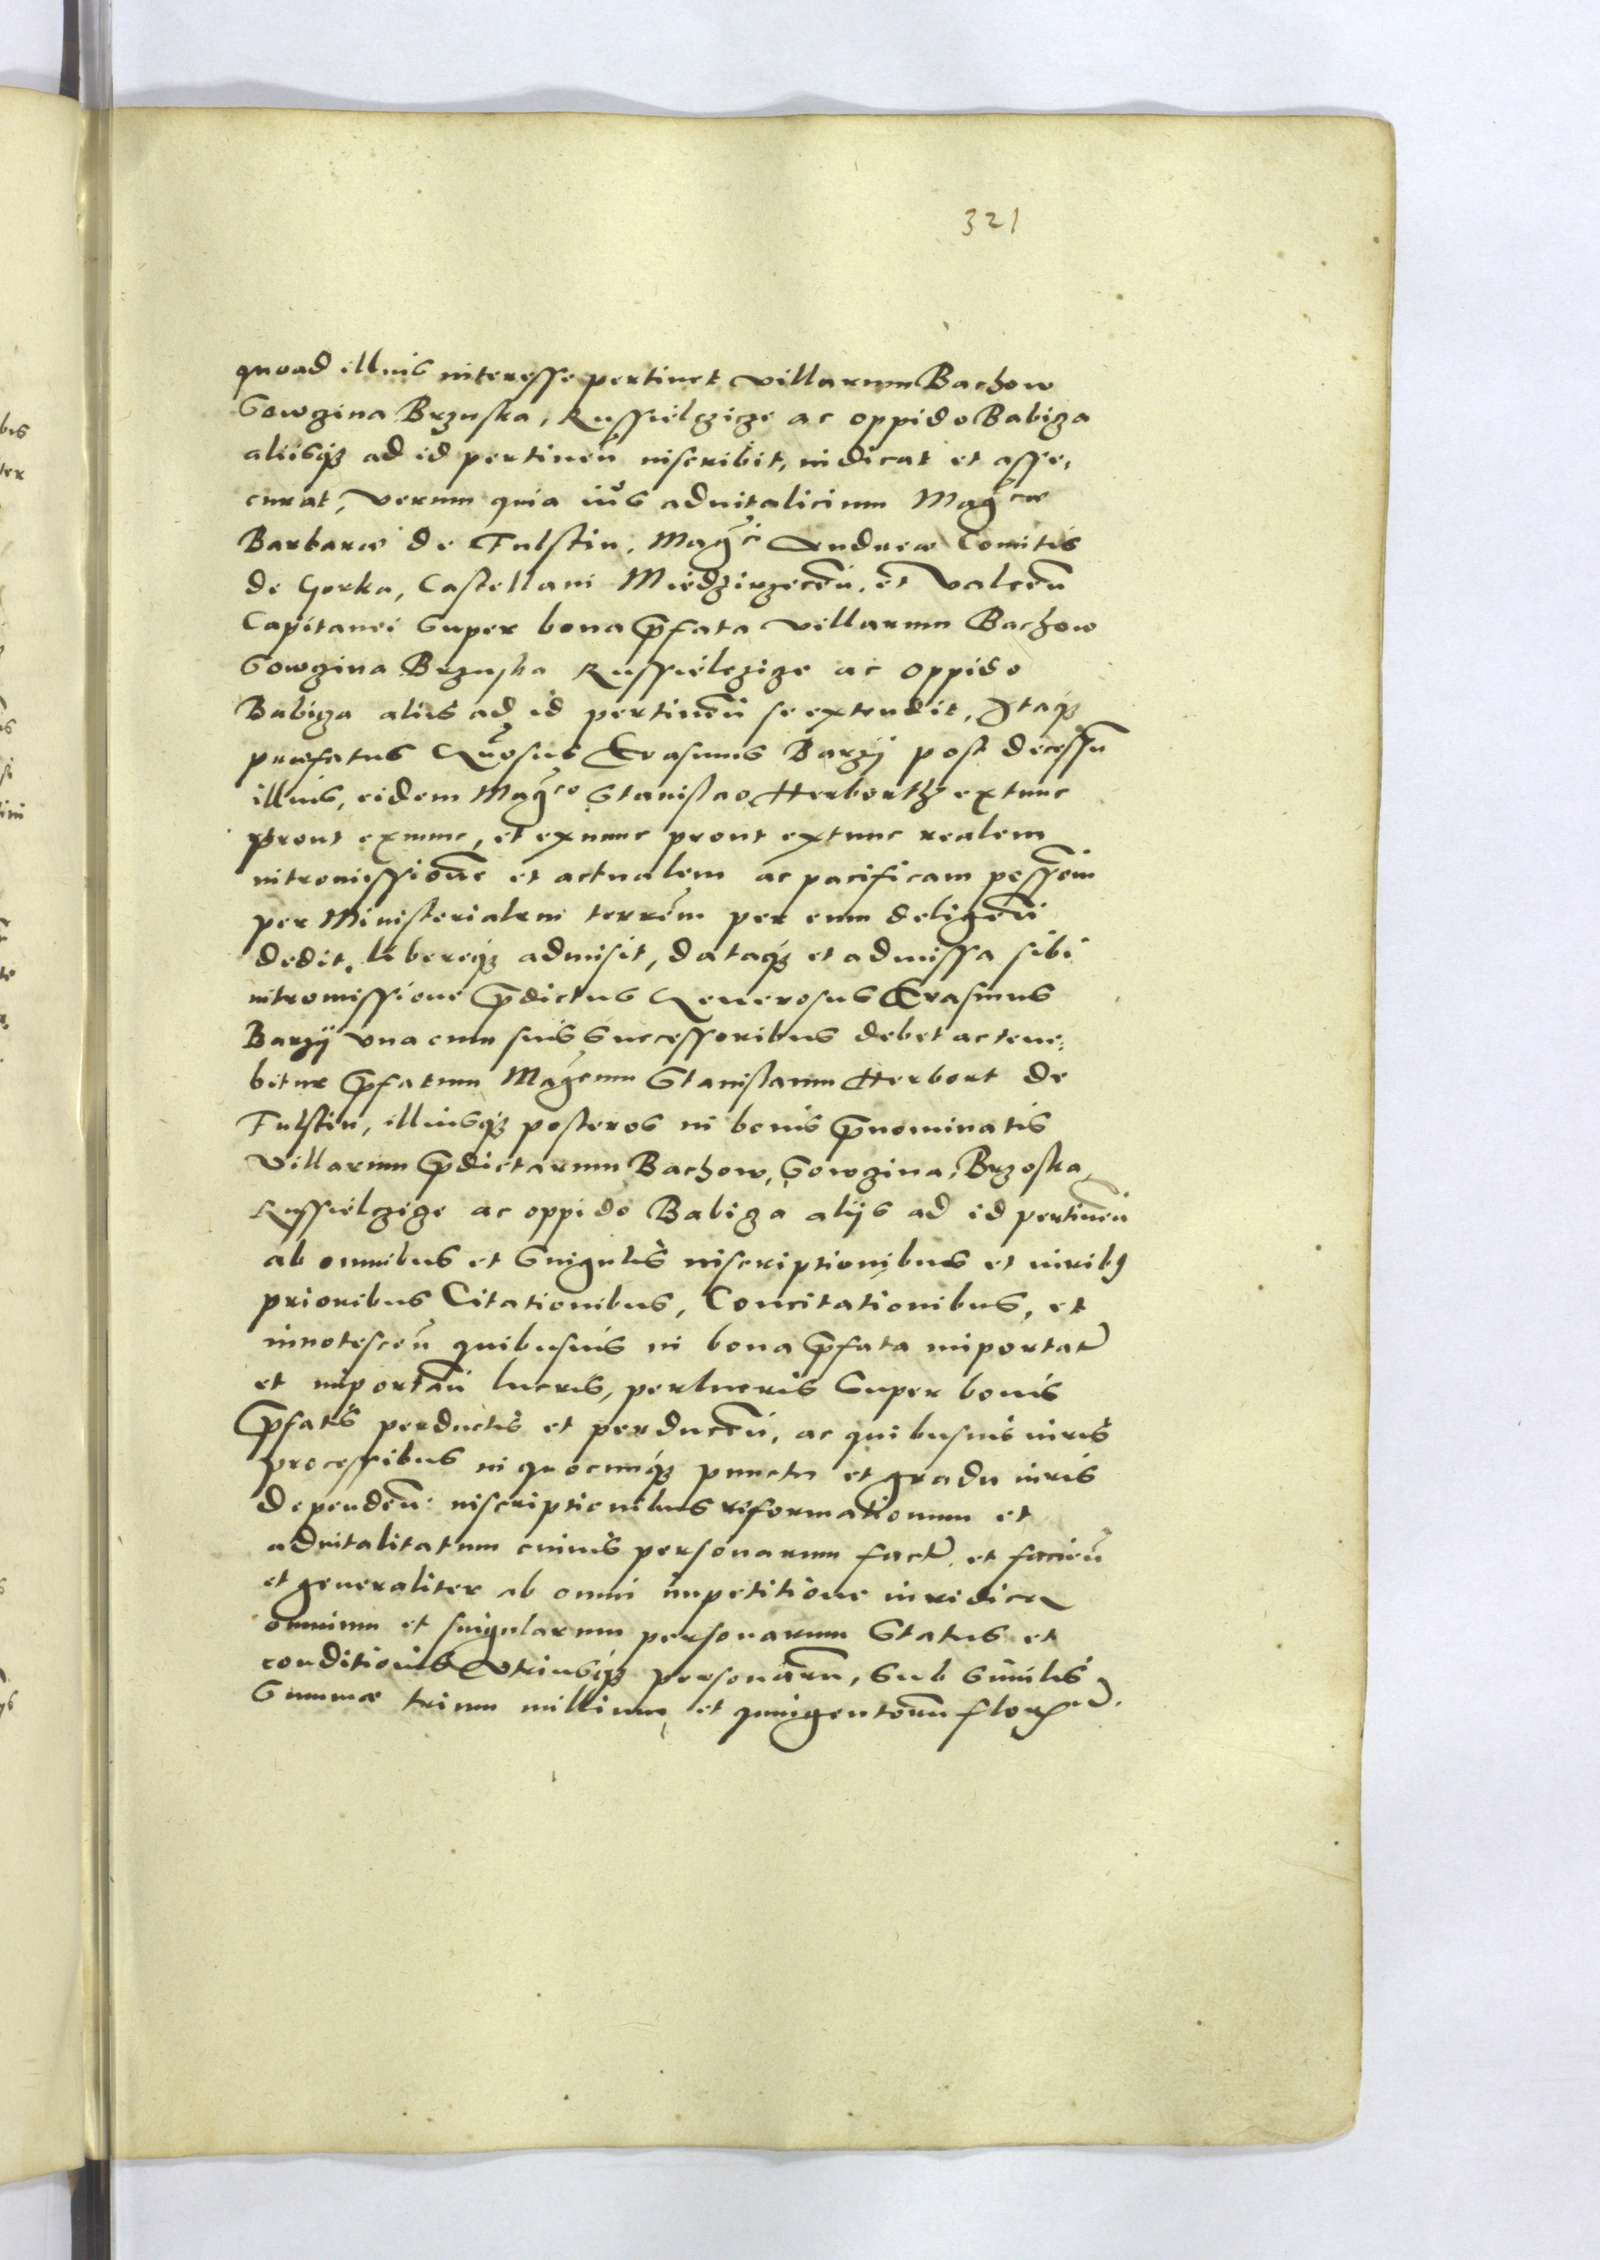 321
quoad illius interesse pertinet villarum Bachow
Sowgina Brzuska, Russielczicze ac oppido Babiza
aliisq3 ad id pertineñ inscribit, indicat et asse,
curat, verum quia ius advitalicium Magcae
Barbarae de Fulstin, Magci Andreae Comitis
de Gorka, Castellani Miedzirzeceñ. et Valceñ
Capitanei super bona p̃fata villarum Bachow
Sowgina Brzuska Russielczize ac oppido
Babiza aliis ad id pertineñ se extendit, Itaq3
praefatus Gñosus Erasmus Barzij post decessũ
illius, eidem Magco Stanislao Herborth extunc
prout exnunc, et exnunc prout extunc realem
intromissionẽ et actualem ac pacificam possẽom
per Ministerialem terrẽm per eum deligeñ
dedit, libereq3 admisit, dataq3 et admissa sibi
intromissione p̃dictus Generosus Erasmus
Barzij una cum suis successoribus debet ac tene,
bitur p̃fatum Magcum Stanislaum Herbort de
Fulstin, illiusq3 posteros in bonis p̃nominatis
Villarum p̃dictarum Bachow, Sowgina, Brzoska,
Russielczize ac oppido Babiza aliis ad id pertineñ
ab omnibus et singulis inscriptionibus et iurib9
prioribus Citationibus, Concitationibus, et
innotesceñ quibusuis in bona p̃fata importat̃
et importañ lucris, perlucris super bonis
p̃fatis perductis et perduceñ, ac quibusuis iuris
processibus in quocunq3 punctu et gradu iuris
dependeñ: inscriptionibus reformationum et
advitalitatum cuiuis personarum fact̃ et facieñ
et generaliter ab omni impetitione iuridica
omnium et singularum personarum status et
conditionis utriusq3 personarũ, sub similis
summae trium millium et quingentorũ flor